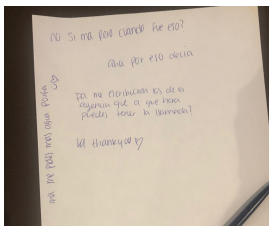 no si ma pero cuando fue eso?
aaa por eso decía
ya me escribieron los de la
agencia que a que hora
puedes tener la llamada?
thankyou ♡
ma me podés mas agua porfa